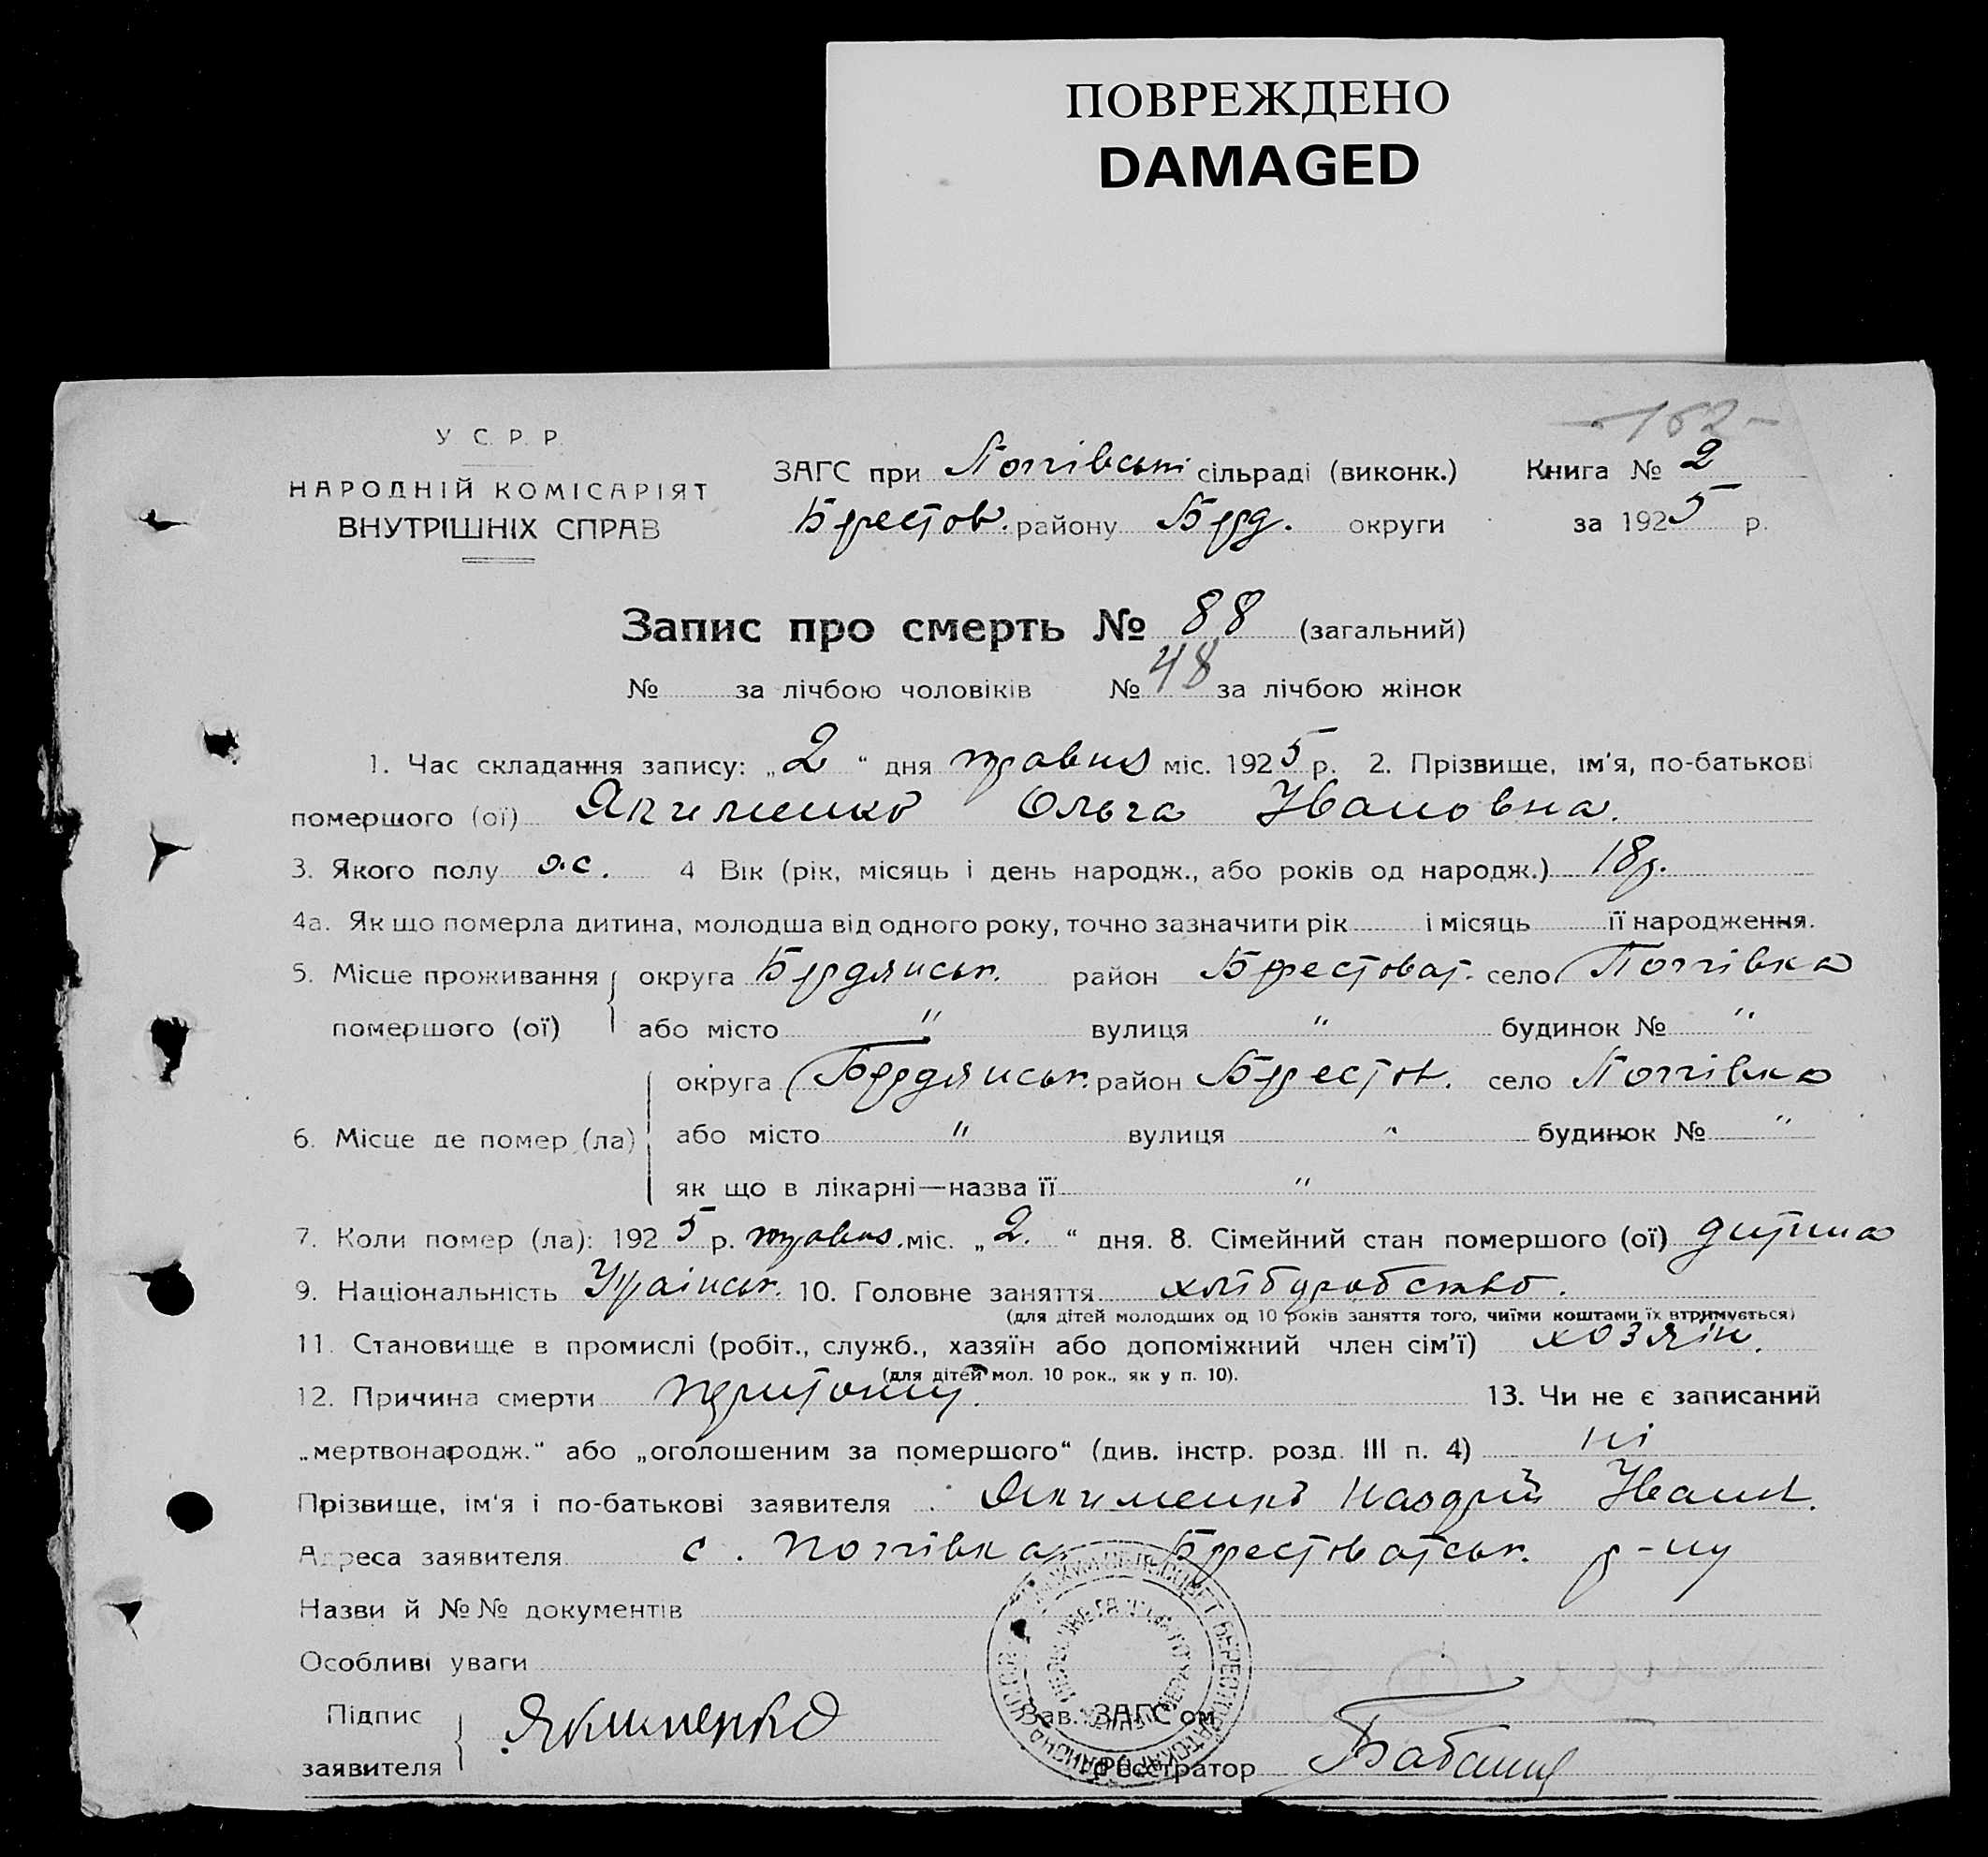 ПОВРЕЖДЕНО
DAMAGED
-162-
У С. Р. Р.
НАРОДНІЙ КОМІСАРІЯТ
ВНУТРІШНІХ СПРАВ
ЗАГС при Попівські сільраді (виконк.) Книга № 2
Берестов. району Берд. округи за 1925 р.
Запис про смерть № 88 (загальний)
№ за лічбою чоловіків № 48 за лічбою жінок
1. Час складання запису: „2“ дня травня міс. 1925 р. 2. Прізвище, ім'я, по-батькові
помершого (ої) Якименко Ольга Івановна.
3. Якого полу ж. 4 Вік (рік, місяць і день народж., або років од народж.) 18 р.
4а. Як що померла дитина, молодша від одного року, точно зазначити рік і місяць її народження.
5. Місце проживання округа Бердянськ. район Берестоват. село Попівка
помершого (ої) або місто " вулиця " будинок № "
округа Бердянськ. район Берестов. село Попівка
6. Місце де помер (ла) або місто " вулиця " будинок № "
як що в лікарні—назва її "
7. Коли помер (ла): 1925 р. травня. міс. „2.“ дня. 8. Сімейний стан помершого (ої) дитина
9. Національність Украінськ. 10. Головне заняття хлібуробство.
(для дітей молодших од 10 років заняття того, чиїми коштами їх втримується)
11. Становище в промислі (робіт., служб., хазяїн або допоміжний член сім'ї) хозяін.
(для дітей мол. 10 рок., як у п. 10).
12. Причина смерти 13. Чи не є записаний
„мертвонародж.“ або „оголошеним за помершого“ (див. інстр. розд. III п. 4) ні
Прізвище, ім'я і по-батькові заявителя Якименко Іванов.
Адреса заявителя с. Попівка Берестоватськ. р-ну
Назви й №№ документів
Особливі уваги
Підпис
заявителя Якименко
Зав. ЗАГС'ом
Реєстратор